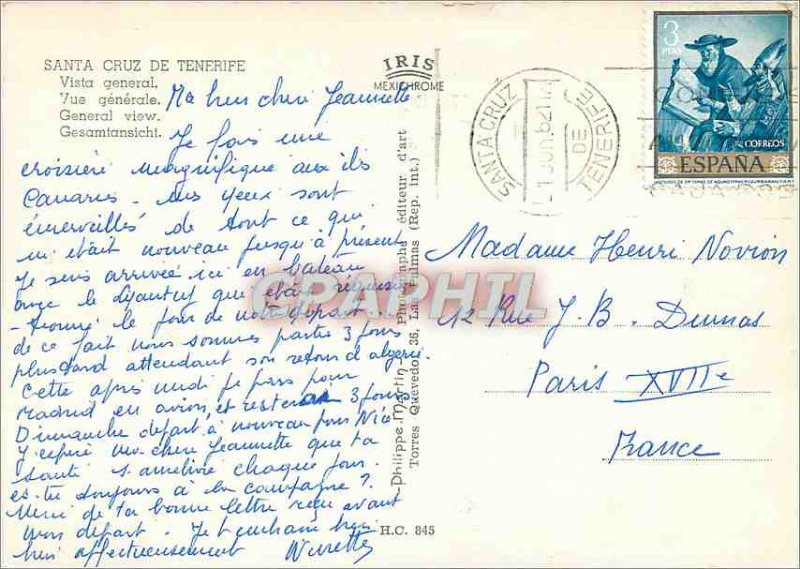 SANTA CRUZ DE TENERIFE
Vista general.
Vue générale.
General view.
Gesamtansicht.
IRIS
MEXICHROME
Ma bien chère Jeannette
Je fais une
croisière magnifique aux îls
Canaries - mes yeux sont
émerveillés de tout ce qui
m'était nouveau jusqu'à présent
Je suis arrivée ici en bateau
avec le que était réquisi-
- tionné le jour de notre départ.
de ce fait nous sommes partis 3 jours
plus tard attendant son retour d'algérie.
Cette après midi je pars pour
Madrid en avion, et resterai 3 jours
Dimanche départ à nouveau pour Nice
J'espère ma chère Jeannette que ta
santé s'améliore chaque jour.
es-tu toujours à la campagne ?
Merci de ta bonne lettre reçu avant
mon départ. Je t'embrasse bien
bien affectueusement Ninette
Philippe Martin - Photographe éditeur d'art
Torres Quevedo, 36, Las Palmas (Rep. int.)
H.C. 845
CPAPHIL
SANTA CRUZ DE TENERIFE
1 JUN. 62
3
PTAS
CORREOS
ESPAÑA
Madame Henri Novion
12 Rue J. B. Dumas
Paris XVIIe
France